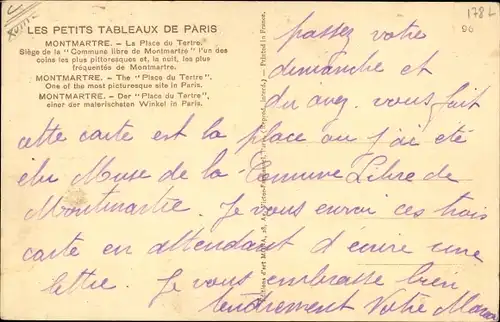 LES PETITS TABLEAUX DE PARIS
MONTMARTRE. — La Place du Tertre.
Siège de la "Commune libre de Montmartre" l'un des
coins les plus pittoresques et, la nuit, les plus
fréquentés de Montmartre.
MONTMARTRE. — The "Place du Tertre".
One of the most picturesque site in Paris.
MONTMARTRE. — Der "Place du Tertre",
einer der malerischsten Winkel in Paris.
passez votre
dimanche et
du avez. vous fait
cette carte est la place ou j'ai été
élu Muse de la Comune Libre de
Montmartre. Je vous envoi ces trois
carte en attendant d'écrire une
lettre. Je vous embrasse bien
tendrement Votre
Printed in France.
1786